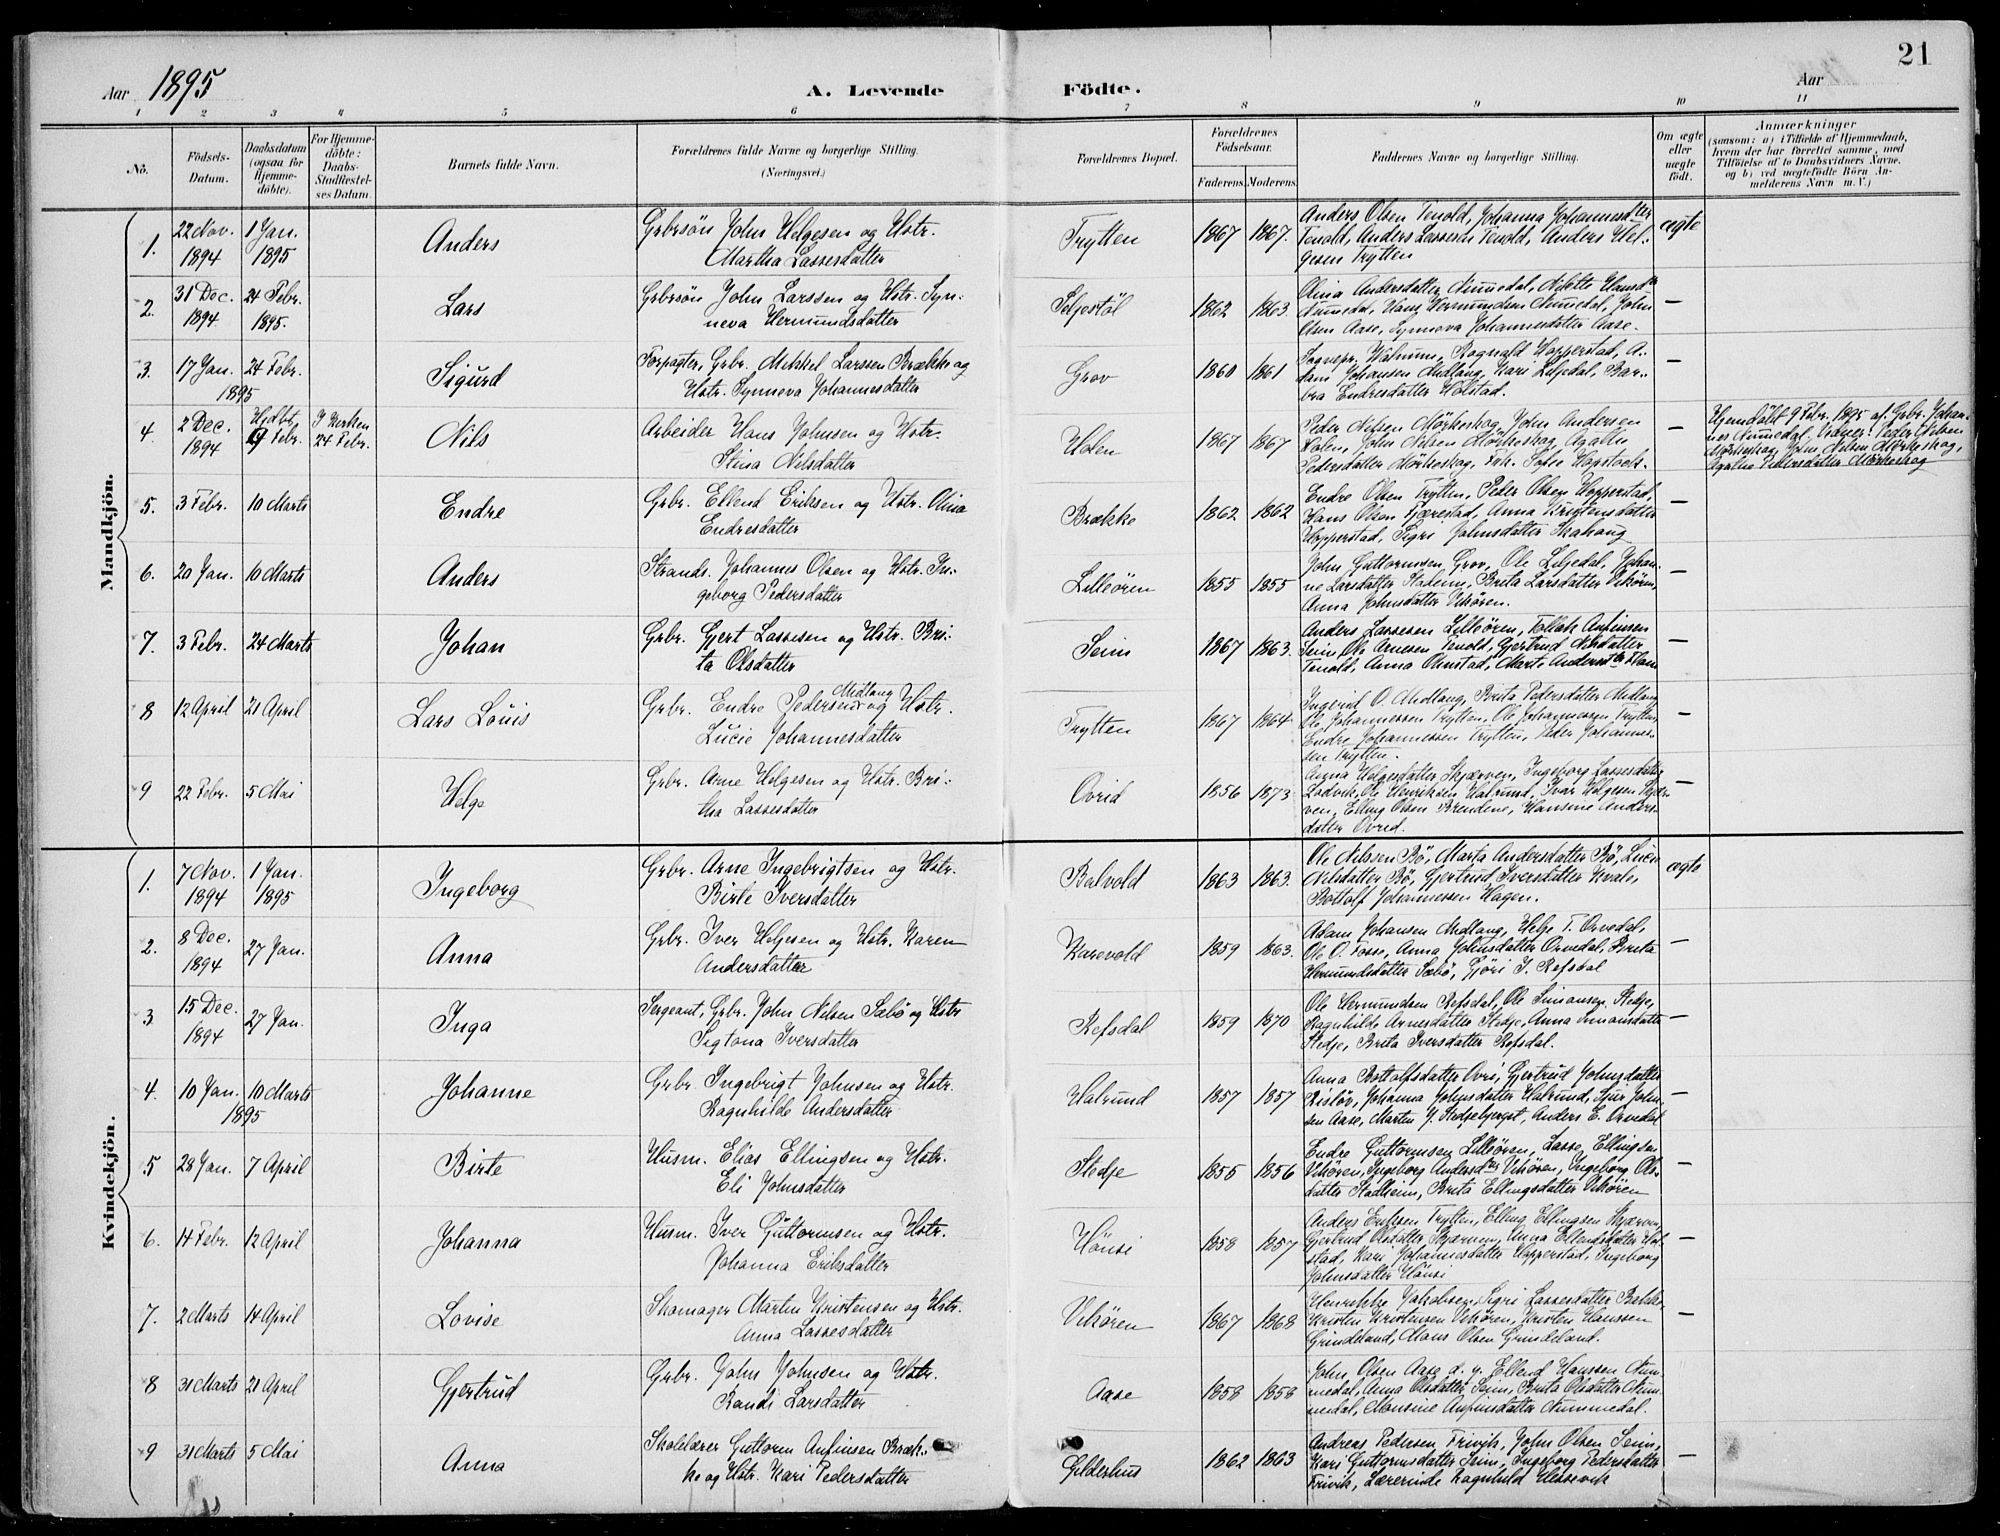 21
Aar 1895
A. Levende Födte.
Aar
1 2 3 4 5 6 7 8 9 10 11
No.
Födsels-Datum.
Daabsdatum (ogsaa for Hjemme-döbte).
For Hjemme-döbte: Daabs-Stadfæstel-ses Datum.
Barnets fulde Navn.
Forældrenes fulde Navne og borgerlige Stilling. (Næringsvei.)
Forældrenes Bopæl.
Forældrenes Födselsaar.
Faderens. Moderens.
Faddernes Navne og borgerlige Stilling.
Om ægte eller uægte födt.
Anmærkninger
(saasom: a) i Tilfælde af Hjemmedaab,
hvem der har forrettet samme, med
Tilföielse af to Daabsvidners Navne.
og b) ved uægtefödte Börn An-
melderens Navn m. V.)
Mandkjön.
1. 22 Nov. 1894 1 Jan. 1895 Anders Grbrsön John Helgesen og Hstr. Martha Lassesdatter Trytten 1867 1867. Anders Olsen Tenold, Johanna Johannesdtter
Tenold, Anders Lassesen Tenold, Anders Hel-
gesen Trytten ægte
2. 31 Dec. 1894 24 Febr. 1895. Lars Grbrsön John Larssen og Hstr. Syn-
neva Hermundsdatter Seljestöl 1862 1863. Olina Andersdatter Numedal, Nilette Hansdtr
Numedal, Hans Hermundsen Numedal, John
Olsen Aase, Synneva Johannesdatter Aase. —
3. 17 Jan. 1895 24 Febr. Sigurd Forpagter, Grbr. Mikkel Larssen Brække og
Hstr. Synneva Johannesdatter Grov 1860 1861 Sognepr. Walnum, Ragnvald Hopperstad, A-
dam Johansen Midlang, Kari Liljedal, Bar-
bra Endresdatter Holstad. —
4. 2 Dec. 1894 Hjdbt. 9 Febr. I Kirken 24 Febr. Nils Arbeider Hans Johnsen og Hstr.
Stina Nilsdatter Holen 1867 1867 Peder Nilsen Mörkeskog, John Andersen
Holen, John Nilsen Mörkeskog, Agathe
Pedersdatter Mörkeskog, Frk. Sofie Hopstock. — Hjemdöbt 9 Febr. 1895 af Grbr. Johan-
nes Numedal. Vidner: Peder Nilsen
Mörkeskog, John Nilsen Mörkeskog,
Agathe Pedersdatter Mörkeskog
5. 3 Febr. 10 Marts Endre Grbr. Ellend Eriksen og Hstr. Olina
Endresdatter Brække 1862 1862 Endre Olsen Trytten, Peder Olsen Hopperstad,
Hans Olsen Fjærestad, Anna Kristensdatter
Hopperstad, Sigri Johnsdatter Skahaug —
6. 20 Jan. 10 Marts Anders Strands. Johannes Olsen og Hstr. In-
geborg Pedersdatter Lilleören 1855 1855 John Guttormsen Grov, Ole Liljedal, Johan-
ne Larsdatter Stadeim, Brita Larsdatter Vikören,
Anna Johnsdatter Vikören. —
7. 3 Febr. 24 Marts Johan Grbr. Gjert Lassesen og Hstr. Bri-
ta Olsdatter Seim 1867 1863. Anders Lassesen Lilleören, Tollak Anfinsen
Seim, Ole Arnesen Tenold, Gjertrud Nilsdatter
Tenold, Anna Olmstad, Mart. Andersdtr —
8 12 April 21 April Lars Louis Grbr. Endre Pedersen Midlang og Hstr.
Lucie Johannesdatter Trytten 1867 1864. Ingerid O. Midlang, Brita Pedersdatter Midlang
Ole Johannessen Trytten, Ole Johannessen Trytten,
Endre Johannessen Trytten, Peder Johannes-
sen Trytten. —
9 22 Febr. 5 Mai Helge Grbr. Arne Helgesen og Hstr. Bri-
tha Lassesdatter Ovrid 1856 1873. Anna Helgesdatter Skjærven, Ingeborg Lassesdatter
Lodvik, Ole Henriksen Halrund, Ivar Helgesen Skjær-
ven, Elling Olsen Brendene, Hansine Anders-
datter Ovrid. —
Kvindekjön.
1. 7 Nov. 1894 1 Jan. 1895 Ingeborg Grbr. Arne Ingebrigtsen og Hstr.
Birte Iversdatter Balvold 1863 1863. Ole Nilssen Bö, Marta Andersdatter Bö, Lucie
Nilsdatter Bö, Gjertrud Iversdatter Kvale,
Bottolf Johannessen Hagen. ægte
2. 8 Dec. 1894 27 Jan. Anna Grbr. Iver Helgesen og Hstr. Karen
Andersdatter Karevold 1859 1863. Adam Johansen Midlang, Helje T. Orvedal,
Ole O. Fosse, Anna Johnsdatter Orvedal, Brita
Hermundsdatter Sæbö, Gjöri I. Refsdal —
3 15 Dec. 1894 27 Jan. Inga Sergeant, Grbr. John Nilsen Sæbö og Hstr
Sigtona Iversdatter Refsdal 1859 1870 Ole Hermundsen Refsdal, Ole Simonsen Stedje,
Ragnhilde Arnesdatter Stedje, Anna Simonsdatter
Stedje, Brita Iversdatter Refsdal. —
4. 10 Jan. 1895 10 Marts Johanne Grbr. Ingebrigt Johnsen og Hstr.
Ragnhilde Andersdatter Halrund 1857 1857 Anna Bottolfsdatter Ovri, Gjertrud Johnsdatter
Rislöv, Johanna Johnsdatter Halrund, Sjur John-
sen Aase, Marten J. Stedjebjerget, Anders E. Orvedal —
5 28 Jan. 7 April Birte Husm. Elias Ellingsen og Hstr.
Eli Johnsdatter Stedje 1855 1856 Endre Guttormsen Lilleören, Lasse Ellingsen
Vikören, Ingeborg Andersdtr Vikören, Ingeborg Ols-
datter Stadheim, Brita Ellingsdatter Vikören —
6. 14 Febr. 12 April Johanna Husm. Iver Guttormsen og Hstr.
Johanna Eriksdatter Hönsi 1858 1857 Anders Eriksen Trytten, Elling Ellingsen Skjærven,
Gjertrud Olsdatter Skjærven, Anna Ellendsdatter Hol-
stad, Kari Johannesdatter Hopperstad, Ingeborg
Johnsdatter Hönsi —
7. 2 Marts 14 April Lovise Skomager Martin Kristensen og Hstr.
Anna Lassesdatter Vikören 1867 1868 Henrikke Jakobsen, Sigri Lassesdatter Bakke
Kristen Kristensen Vikören, Kristen Hanssen
Grindeland, Hans Olsen Grindeland. —
8 31 Marts 21 April Gjertrud Grbr. John Johnsen og Hstr.
Randi Larsdatter Aase 1858 1858 John Olsen Aase d. y. Ellend Hanssen Num-
medal, Anna Olsdatter Seim, Brita Olsdatter Num-
medal, Monsine Anfinsdatter Nummedal. —
9 31 Marts 5 Mai Anna Skolelærer Guttorm Anfinsen Bræk-
ke og Hstr. Kari Pedersdatter Gilderhus 1862 1863 Andreas Pedersen Frivik, John Olsen Seim,
Kari Guttormsdatter Seim, Ingeborg Pedersdatter
Frivik, Lærerinde Ragnhild Hessevik —